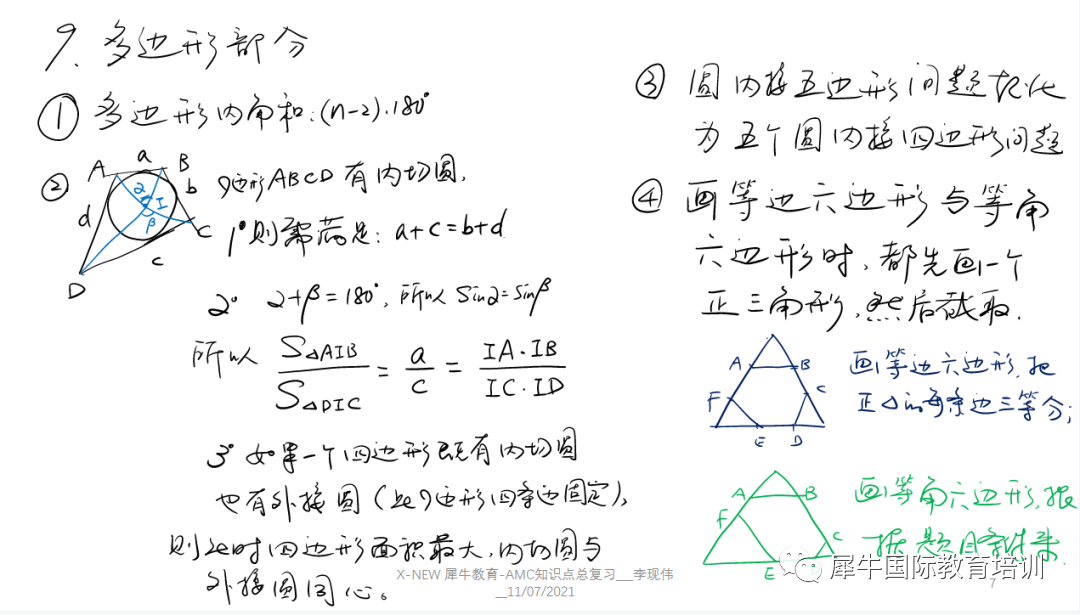 9. 多边形部分
① 多边形内角和:(n-2)·180°
②
A a B
b
d
2
I
β
C
c
D
四边形ABCD有内切圆,
1° 则需满足: a+c=b+d
2° 2+β=180°, 所以 Sin2=Sinβ
所以 S△AIB / S△DIC = a/c = IA·IB / IC·ID
3° 如果一个四边形既有内切圆
也有外接圆(此四边形四条边固定),
则此时四边形面积最大,内切圆与
外接圆同心。
③ 圆内接五边形问题转化
为五个圆内接四边形问题
④ 画等边六边形与等角
六边形时,都先画一个
正三角形,然后截取.
A B
F C
E D
画等边六边形,把
正△的每条边三等分;
A B
F
C
E
画等角六边形,根
据题目条件来
X-NEW 犀牛教育-AMC知识点总复习__李现伟
__11/07/2021
犀牛国际教育培训